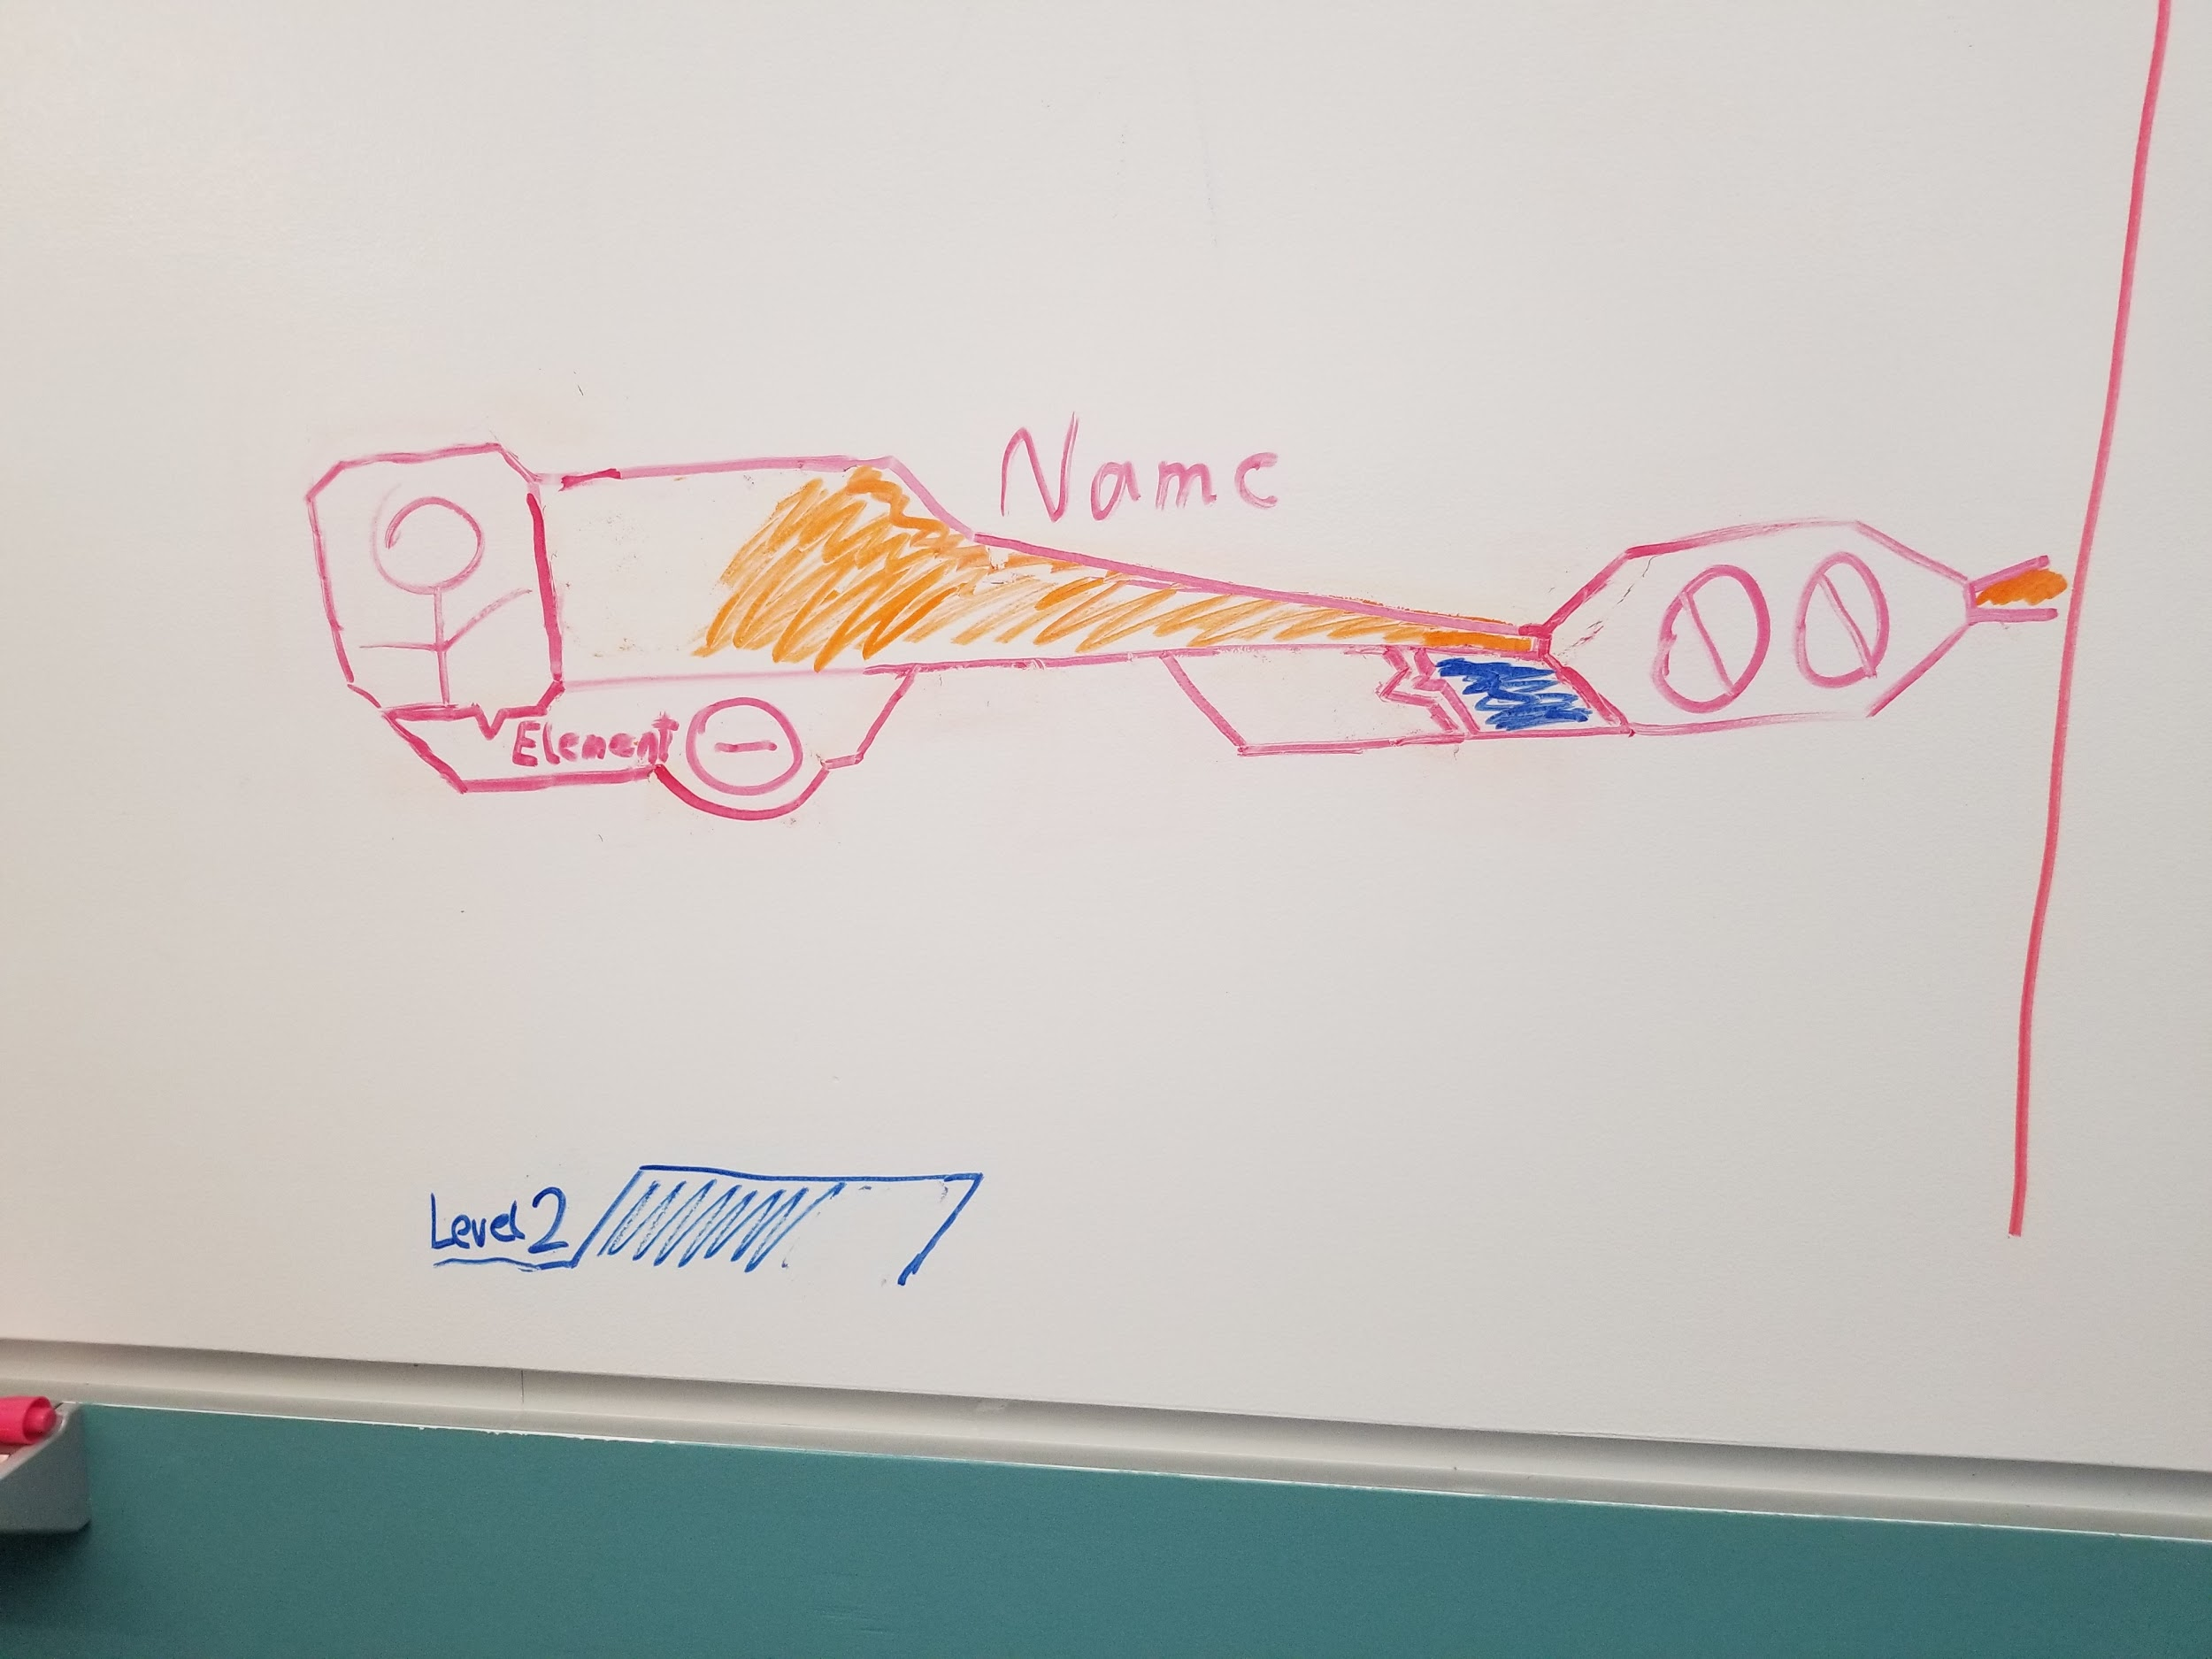 Name
Element
Level 2